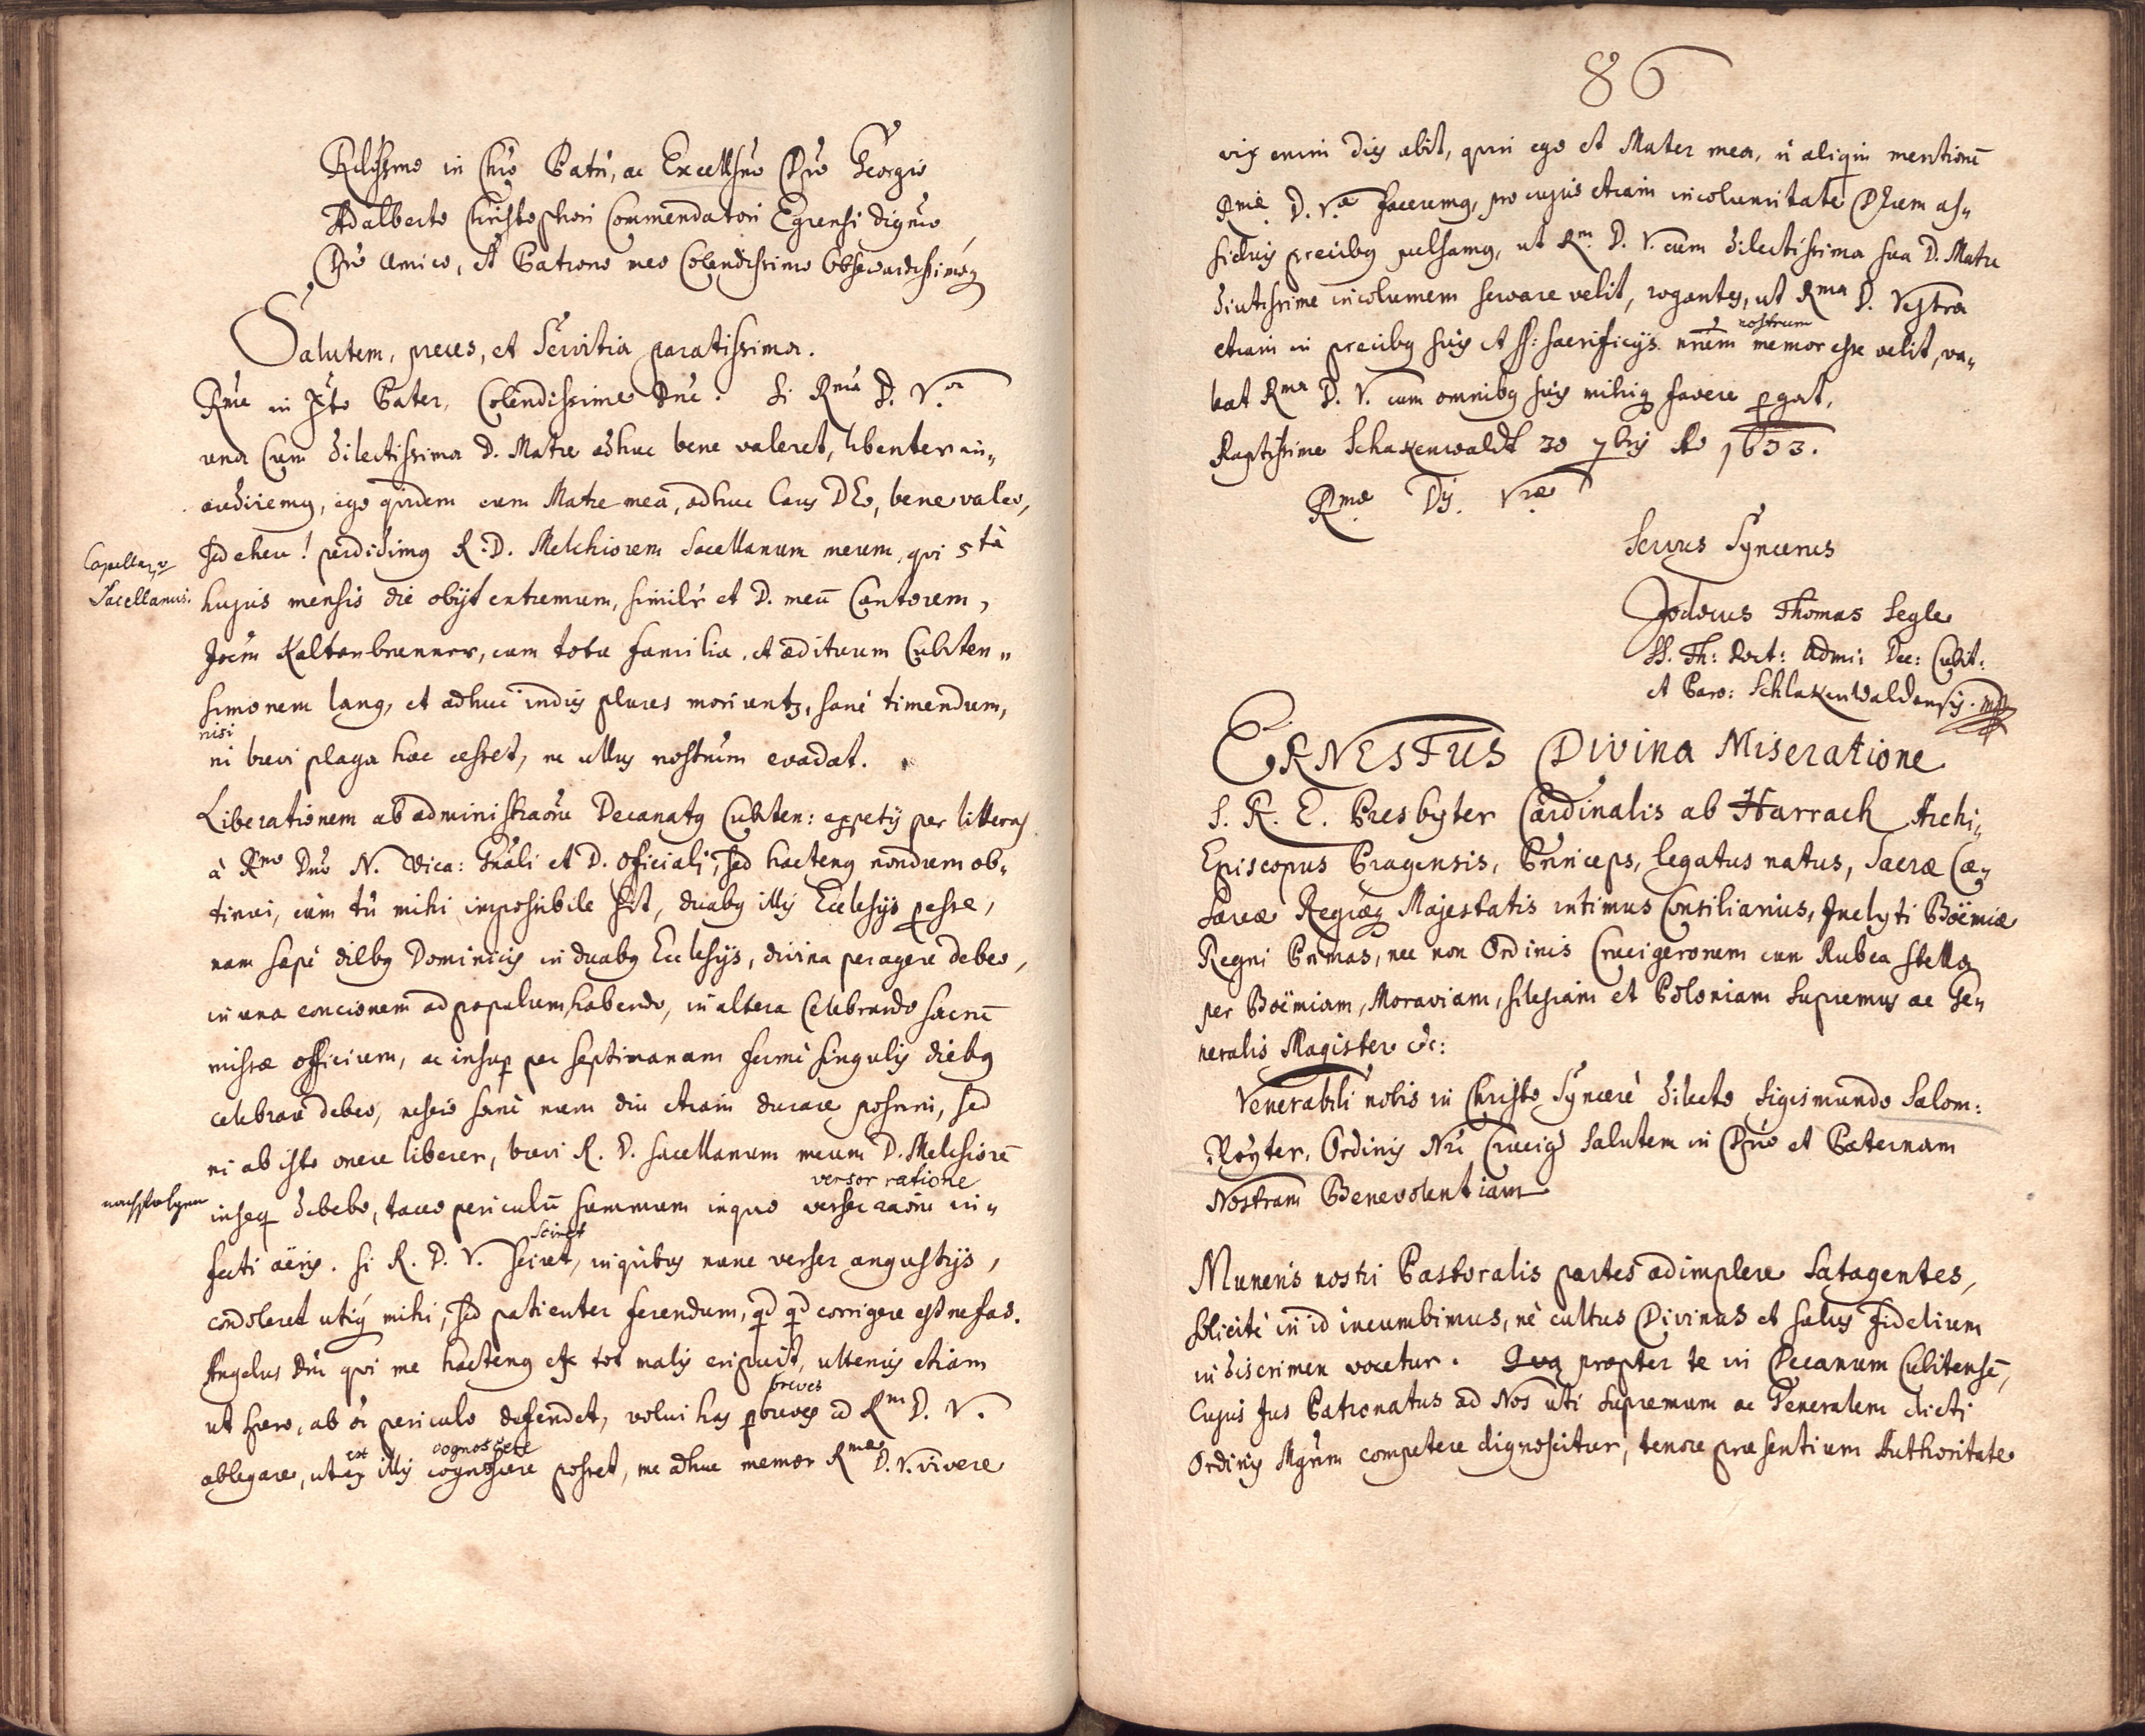 Rdissimo in Chro Patri, ac Excellmo Dno Georgio
Adalberto Christophori Commendatori Egrensi digmo,
Dno Amico, et Patrono meo Colendissimo Observandissimoq
Salutem, preces, et Servitia paratissima.
Rme in Xsto Pater, Colendissime Dne. Si Rma D. V.a
una Cum dilectissima D. Matre adhuc bene valeret, libenter in„
audiremq, ego quidem cum Matre mea, adhuc laus DEo, bene valeo,
sed eheu! perdidimq R: D. Melchiorem Sacellanum meum, qui 5tà
Capellan
Sacellanus.
hujus mensis die obijt extremum, similr et D. meū Cantorem,
Joem Kaltenbrunner, cum tota familia, et ædituum Cubiten„
Simonem lang, et adhuc indies plures moriuntz, sanè timendum,
nisi
ni brevi plaga hæc cesset, ne ullus nostrum evadat.
Liberationem ab administraone Decanatq Cubiten: expetij per litteras
à Rmo Dno N. Vica: Gnali et D. Officiali, sed hactenq nondum ob„
tinui, cùm tn mihi impossibile sit, duabq illis Ecclesijs pesse,
nam sæpè diebq Dominicis in duabq Ecclesijs, divina peragere debeo,
in una concionem ad populum habendo, in altera Celebrando sacrū
missæ officium, ac insup per septimanam fermè singulis diebq
celebrare debeo, nescio sanè num diu etiam durare possim, sed
ni ab isto onere liberer, brevi R. D. Sacellanum meum D. Melchiorē
versor ratione
nachfolgen
inseq debebo, taceo periculū summum in quo verser raone in„
sciret
fecti aëris. Si R. D. V. sciret, in quibus nunc verser angustijs,
condoleret utiq mihi, sed patienter ferendum, qd qd corrigere est nefas.
Angelus Dni qui me hactenq ex tot malis eripuit, ulterius etiam
breves
ut spero, ab oi periculo defendet, volui has pbreves ad Rm D. V.
ex cognoscere
ablegare, ut ex illis cognoscere posset, me adhuc memor Rmæ D. V. vivere
86
vix enim dies abit, quin ego et Mater mea, n aliqm mentionē
Rmæ D. V.æ facerremq, pro cujus etiam incolumitate DEum as„
siduis precibq pulsamq, ut Rm. D. V. cum dilectissima sua D. Matre
diutissime incolumem servare velit, rogantes, ut Rma D. Vestra
nostrum
etiam in precibq suis et SS: sacrificijs nrum memor esse velit, va„
leat Rma D. V. cum omnibq suis mihiq favere pgat,
Raptissime Schlakenwaldt 30 7bris Ao 1633.
Rmæ Dis. Vræ
Servus Syncerus
Jodocus Thomas Segle
SS. Th: Doct: Admi: Dec: Cubit:
et Paro: Schlakenwaldensis. mp
ERNESTUS Divina Miseratione
S. R. E. Presbyter Cardinalis ab Harrach Archi„
Episcopus Pragensis, Princeps, legatus natus, Sacræ Cæ„
sareæ Regiæq Majestatis intimus Consiliarius, Inclyti Boëmiæ
Regni Primas, nec non Ordinis Crucigerorum cum Rubea Stella
per Boëmiam, Moraviam, Silesiam et Poloniam Supremus ac Ge„
neralis Magister etc:
Venerabili nobis in Christo Syncerè dilecto Sigismundo Salom:
Royter, Ordinis Nri Crucig Salutem in Dno et Paternam
Nostram Benevolentiam
Muneris nostri Pastoralis partes adimplere Satagentes,
solicitè in id incumbimus, nè cultus Divinus et salus fidelium
in discrimen vocetur. Qua propter te in Decanum Cubitensē,
Cujus Jus Patronatus ad Nos uti Supremum ac Generalem dicti
Ordinis Mgrum competere dignoscitur, tenore præsentium Authoritate